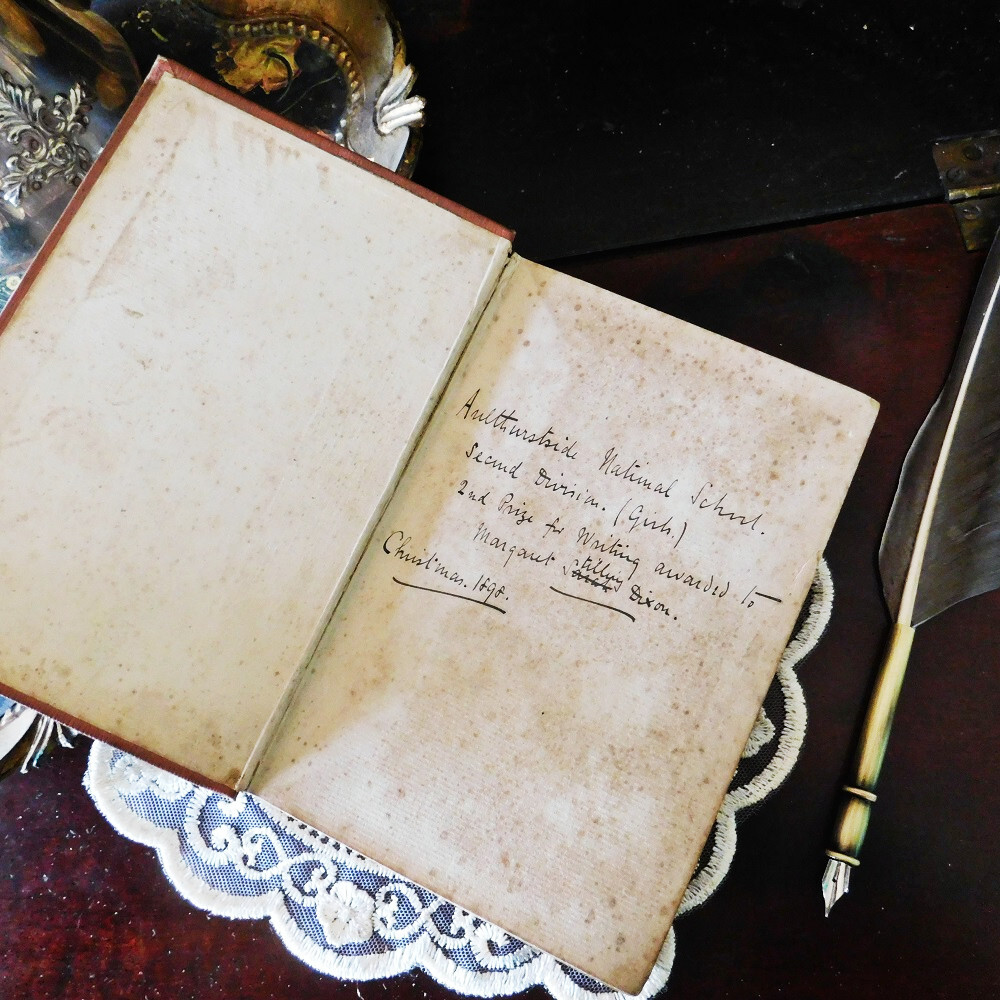 Aulthurstside National School.
Second Division. (Girls.)
2nd Prize for Writing awarded to
Margaret Tilley Dixon.
Christmas. 1898.